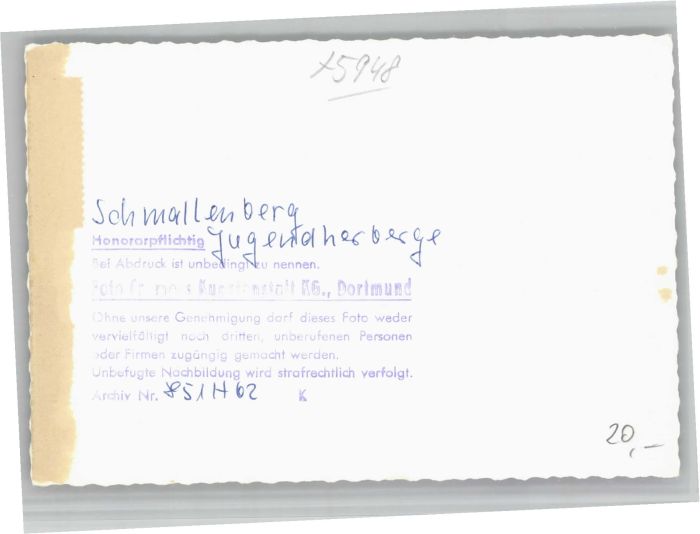 x5948
Schmallenberg
Jugendherberge
Honorarpflichtig
Bei Abdruck ist unbedingt zu nennen.
Foto Kunstanstalt KG., Dortmund
Ohne unsere Genehmigung darf dieses Foto weder
vervielfältigt noch dritten, unberufenen Personen
oder Firmen zugängig gemacht werden.
Unbefugte Nachbildung wird strafrechtlich verfolgt.
Archiv Nr. 851H62 K
20,—